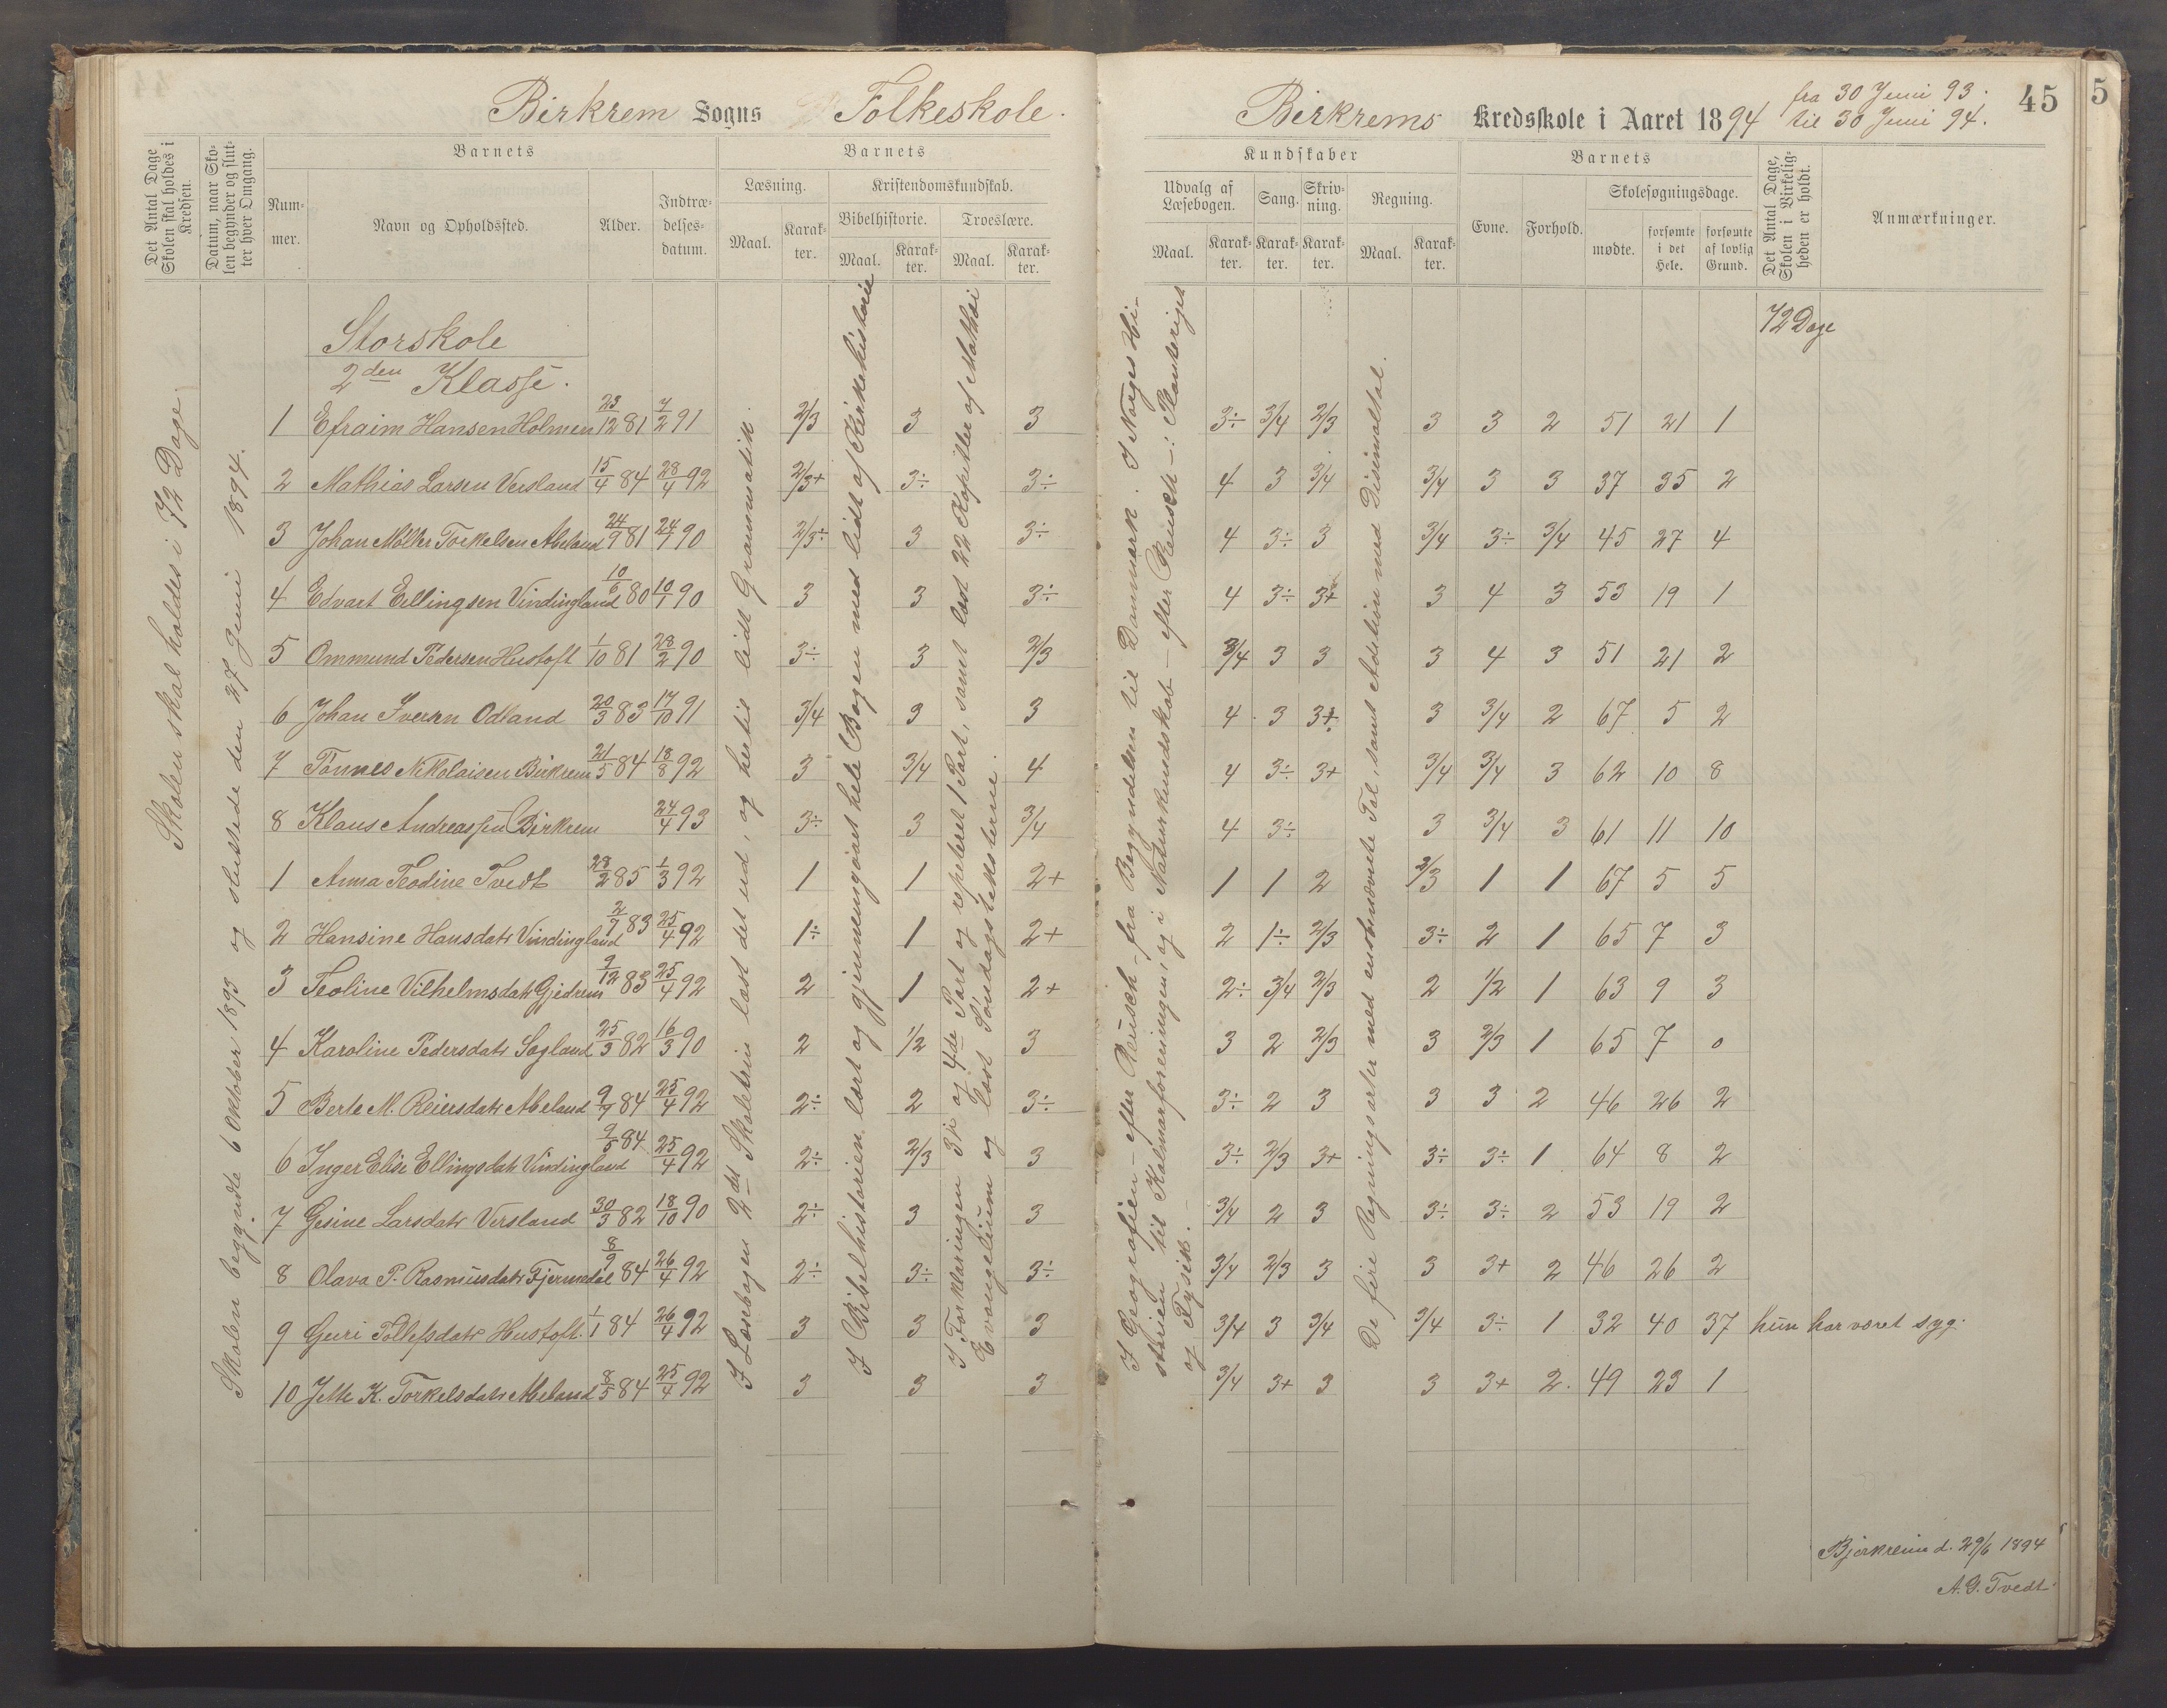 Birkrem Sogns Folkeskole.
Birkrems Kredsskole i Aaret 1894 fra 30 Juni 93.
til 30 Juni 94.
45
5
Det Antal Dage Skolen skal holdes i Kredsen.
Datum, naar Skolen begynder og slutter hver Omgang.
Barnets
Nummer.
Navn og Opholdssted.
Alder.
Indtrædelses-datum.
Barnets
Læsning.
Maal.
Karakter.
Kristendomskundskab.
Bibelhistorie.
Maal.
Karakter.
Troeslære.
Maal.
Karakter.
Kundskaber
Udvalg af Læsebogen.
Maal.
Karakter.
Sang.
Karakter.
Skrivning.
Karakter.
Regning.
Maal.
Karakter.
Barnets
Evne.
Forhold.
Skolesøgningsdage.
mødte.
forsømte i det Hele.
forsømte af lovlig Grund.
Det Antal Dage, Skolen i Virkeligheden er holdt.
Anmærkninger.
Skolen skal holdes i 72 Dage.
Skolen begyndte 6 Oktober 1893 og sluttede den 27 Juni 1894.
Storskole
2den Klasse.
72 Dage
I Læsebogen 2det Skoletrin læst det ud, og hertil lidt Grammatik.
I Bibelhistorien lært og gjennemgaaet hele Bogen med lidt af Kirkehistorie
I Forklaringen 3je og 4de Part og repeteret 1 Part, samt læst 22 Kapitler af Mathæi
Evangelium og læst Søndagsteksterne.
I Geografien – efter Reusch – fra Begyndelsen til Danmark. I Norges Hi-
storien til Kalmarforeningen, og i Naturkundskab – efter Reusch –: Planteriget
og Fysik. –
De fire Regningsarter med enebenævnte Tal, samt Addition med Disimaltal.
1 Efraim Hansen Holmen 23/12 81 7/2 91 2/3 3 3 3÷ 3/4 2/3 3 3 2 51 21 1
2 Mathias Larsen Versland 15/4 84 28/4 92 2/3+ 3÷ 3÷ 4 3 3/4 3/4 3 3 37 35 2
3 Johan Møller Torkelsen Abeland 24/9 81 24/1 90 2/3÷ 3 3÷ 4 3÷ 3 3/4 3÷ 3/4 45 27 4
4 Edvart Ellingsen Vindingland 10/6 80 10/1 90 3 3 3÷ 4 3÷ 3+ 3 4 3 53 19 1
5 Ommund Pedersen Hustoft 1/10 81 28/2 90 3÷ 3 2/3 3/4 3 3 3 4 3 51 21 2
6 Johan Iversen Odland 20/3 83 17/10 91 3/4 3 3 4 3 3+ 3 3/4 2 67 5 2
7 Tønnes Nikolaisen Birkrem 21/5 84 18/8 92 3 3/4 4 4 3÷ 3+ 3/4 3/4 3 62 10 8
8 Klaus Andreassen Birkrem 24/4 93 3÷ 3 3/4 4 3÷ 3 3/4 3 61 11 10
1 Anna Teodine Tvedt 28/2 85 1/3 92 1 1 2+ 1 1 2 2/3 1 1 67 5 5
2 Hansine Hansdatr Vindingland 2/7 83 25/4 92 1÷ 1 2+ 2 1÷ 2/3 3÷ 2 1 65 7 3
3 Teoline Vilhelmsdatr Gjedrem 9/12 83 25/4 92 2 1 2+ 2÷ 3/4 2/3 2 1/2 1 63 9 3
4 Karoline Pedersdatr Sagland 25/3 82 16/3 90 2 1/2 3 3 2 2/3 3 2/3 1 65 7 0
5 Berte M. Reiersdatr Abeland 9/7 84 25/4 92 2÷ 2 3÷ 3÷ 2 3 3 3 2 46 26 2
6 Inger Elise Ellingsdatr Vindingland 9/5 84 25/4 92 2÷ 2/3 3 3÷ 2/3 3+ 3÷ 3÷ 1 64 8 2
7 Gesine Larsdatr Versland 30/3 82 18/10 90 2÷ 3 3 3/4 2 3 3÷ 3÷ 2 53 19 2
8 Olava P. Rasmusdatr Fjermedal 8/9 84 26/4 92 2÷ 3÷ 3÷ 3/4 2/3 3 3 3+ 2 46 26 2
9 Guri Tollefsdatr Hustoft. 1/1 84 26/4 92 3 3 3 3/4 3 3/4 3/4 3÷ 1 32 40 37 hun har været syg.
10 Jette K. Torkelsdatr Abeland 8/5 84 25/4 92 3 3 3 3/4 3+ 3 3 3+ 2. 49 23 1
Bjerkreim d. 29/6 1894
A. G. Tvedt